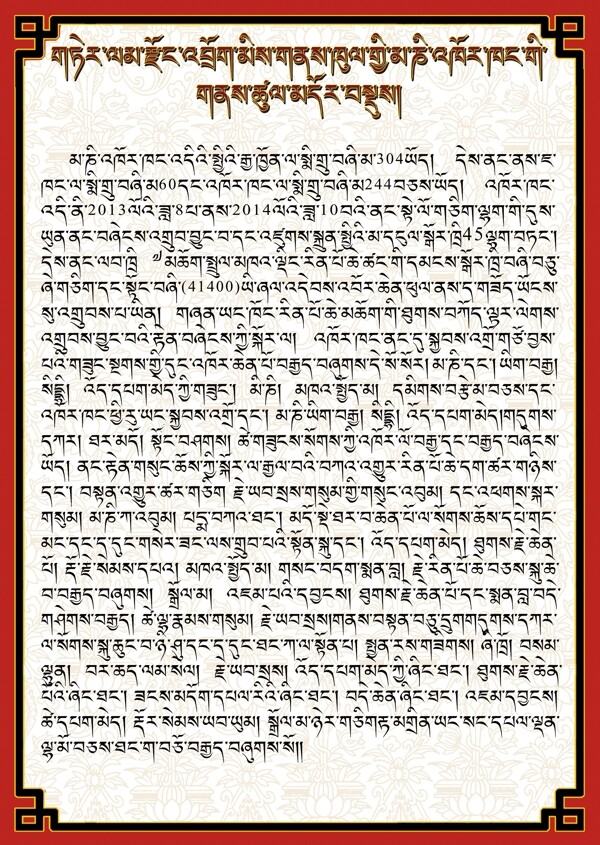 གཏེར་ལམ་རྫོང་འབྲོག་མིས་གནས་ཁུལ་གྱི་མ་ཎི་འཁོར་ཁང་གི་
གནས་ཚུལ་མདོར་བསྡུས།།
མ་ཎི་འཁོར་ཁང་འདིའི་སྤྱིའི་རྒྱ་ཁྱོན་ལ་སྨི་གྲུ་བཞི་མ་304ཡོད། དེས་ནང་ནས་ཇ་
ཁང་ལ་སྨི་གྲུ་བཞི་མ60དང་འཁོར་ཁང་ལ་སྨི་གྲུ་བཞི་མ244བཅས་ཡོད། འཁོར་ཁང་
འདི་ནི་2013ལོའི་ཟླ་8པ་ནས་2014ལོའི་ཟླ་10བའི་ནང་སྟེ་ལོ་གཅིག་ལྷག་གི་དུས་
ཡུན་ནང་བཞེངས་འགྲུབ་བྱུང་བ་དང་འཛུགས་སྐྲུན་སྤྱིའི་མ་དངུལ་སྒོར་ཁྲི45ལྷག་བཏང་།
དེས་ནང་ལབ་ཁྲི ༧མཆོག་སྤྲུལ་མཁའ་ལྡིང་རིན་པོ་ཆེ་ཚང་གི་དམངས་སྒོར་ཁྲི་བཞི་བཅུ་
ཞེ་གཅིག་དང་སྟོང་བཞི་(41400)ཡི་ཞལ་འདེབས་འབོར་ཆེན་ཕུལ་ནས་ད་གཟོད་ཡོངས་
སུ་འགྲུབས་པ་ཡིན། གཞན་ཡང་ཁོང་རིན་པོ་ཆེ་མཆོག་གི་ཐུགས་བཀོད་ལྟར་ལེགས་
འགྲུབས་བྱུང་བའི་རྟེན་བཞེངས་ཀྱི་སྐོར་ལ། འཁོར་ཁང་ནང་དུ་སྐྱབས་འགྲོ་གཙོ་བྱས་
པའི་གཟུང་སྔགས་ཀྱི་དུང་འཁོར་ཆེན་པོ་བརྒྱད་བཞུགས་དེ་སོ་སོར། མ་ཎི་དང་། ཡིག་བརྒྱ།
སིདྡྷི། འོད་དཔག་མེད་ཀྱི་གཟུང་། མི་ཎི། མཁའ་སྤྱོད་མ། དམིགས་བརྩེ་མ་བཅས་དང་
འཁོར་ཁང་ཕྱི་རུ་ཡང་སྐྱབས་འགྲོ་དང་། མ་ཎི་ཡིག་བརྒྱ། སིདྡྷི། འོད་དཔག་མེད།གདུགས་
དཀར། ཐར་མདོ། སྟོང་བཤགས། ཚེ་གཟུངས་སོགས་ཀྱི་འཁོར་ལོ་བརྒྱ་དང་བརྒྱད་བཞེངས་
ཡོད། ནང་རྟེན་གསུང་ཆོས་ཀྱི་སྐོར་ལ་རྒྱལ་བའི་བཀའ་འགྱུར་རིན་པོ་ཆེ་དག་ཚར་གཉིས་
དང་། བསྟན་འགྱུར་ཚར་གཅིག རྗེ་ཡབ་སྲས་གསུམ་གྱི་གསུང་འབུམ། དང་འཕགས་སྐར་
གསུམ། མ་ཎི་ཀ་འབུམ། པདྨ་བཀའ་ཐང་། མདོ་སྡེ་ཐར་བ་ཆེན་པོ་ལ་སོགས་ཆོས་དཔེ་གང་
མང་དང་ད་དུང་གསེར་ཟང་ལས་གྲུབ་པའི་སྟོན་སྐུ་དང་། འོད་དཔག་མེད། ཐུགས་རྗེ་ཆེན་
པོ། རྡོ་རྗེ་སེམས་དཔའ། མཁའ་སྤྱོད་མ། གསང་བདག་སྨན་བླ། རྗེ་རིན་པོ་ཆེ་བཅས་སྐུ་ཆེ་
བ་བརྒྱད་བཞུགས། སྒྲོལ་མ། འཇམ་པའི་དབྱངས། ཐུགས་རྗེ་ཆེན་པོ་དང་སྨན་བླ་བདེ་
གཤེགས་བརྒྱད། ཚེ་ལྷ་རྣམས་གསུམ། རྗེ་ཡབ་སྲས།གནས་བསྟན་བཅུ་དྲུགགདུགས་དཀར་
ལ་སོགས་སྐུ་ཆུང་བ་ཉི་ཤུ་དང་ད་དུང་ཐང་ཀ་ལ་སྟོན་པ། སྤྱན་རས་གཟིགས། ཞི་ཁྲོ། བསམ་
ལྷུན། བར་ཆད་ལམ་སེལ། རྗེ་ཡབ་སྲས། འོད་དཔག་མེད་ཀྱི་ཞིང་ཐང་། ཐུགས་རྗེ་ཆེན་
པོའི་ཞིང་ཐང་། ཟངས་མདོག་དཔལ་རིའི་ཞིང་ཐང་། བདེ་ཆེན་ཞིང་ཐང་། འཇམ་དབྱངས།
ཚེ་དཔག་མེད། རྡོར་སེམས་ཡབ་ཡུམ། སྒྲོལ་མ་ཉེར་གཅིགརྟ་མགྲིན་ཡང་སང་དཔལ་ལྡན་
ལྷ་མོ་བཅས་ཐང་ག་བཅོ་བརྒྱད་བཞུགས་སོ།།